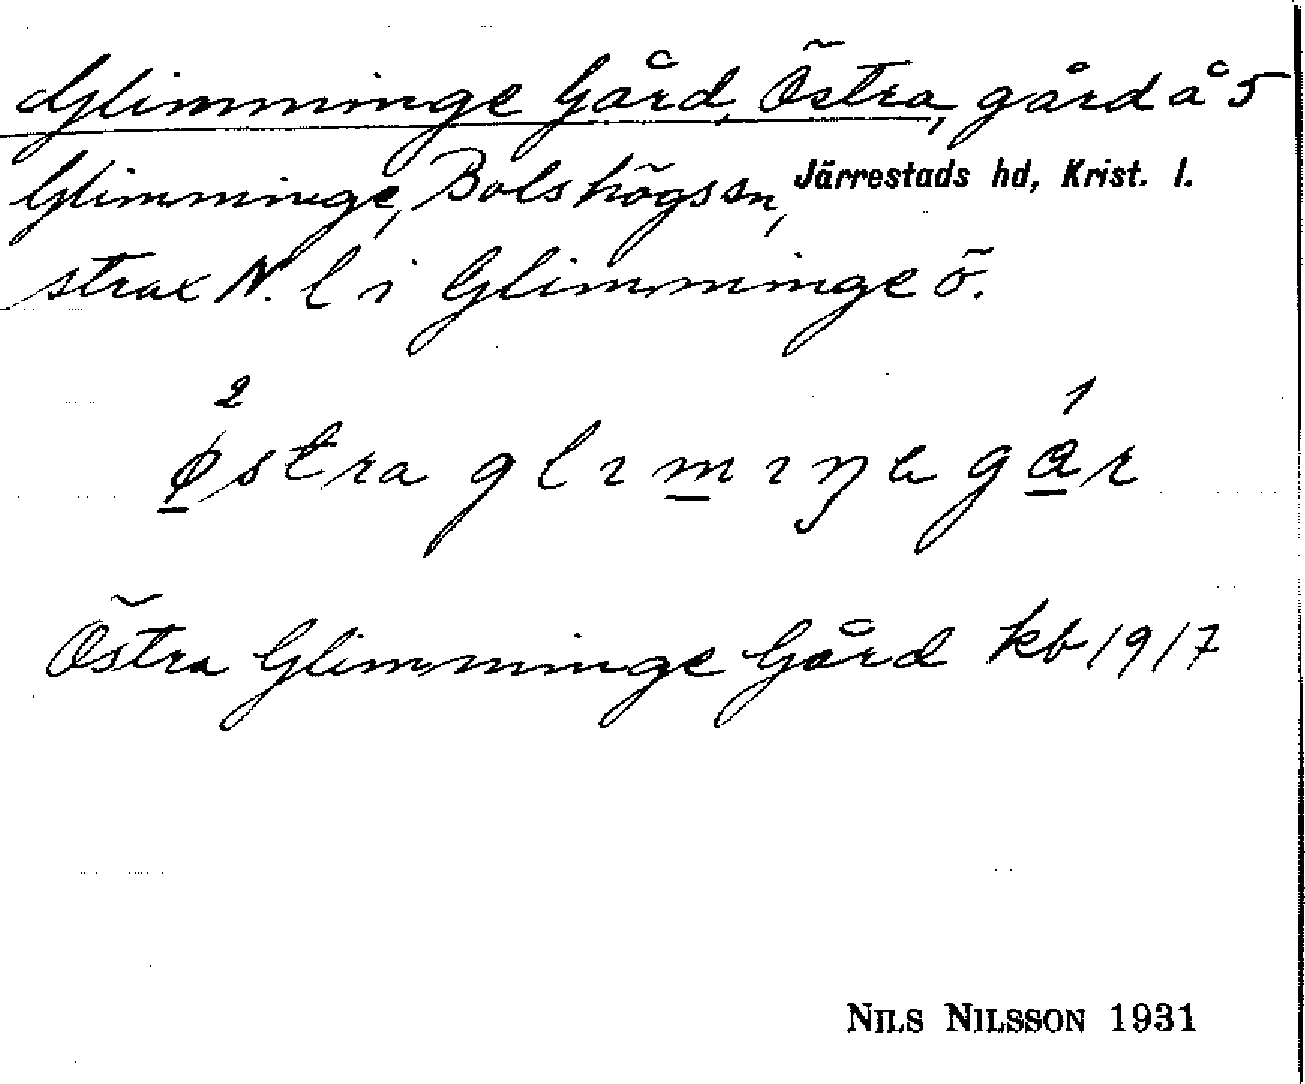 Glimminge Gård, Östra, gård å 5
Glimminge, Bolshögs sn, Järrestads hd, Krist. l.
strax N. l i Glimminge ö.
2 1
østra glımıŋa gar
Östra Glimminge Gård kb 1917
NILS NILSSON 1931